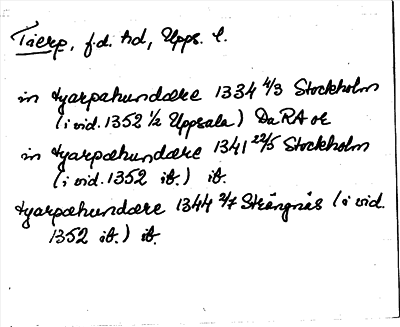 Tierp, f.d. hd, Upps. l.
in tyarpahundære 1334 4/3 Stockholm
(i vid. 1352 1/2 Uppsala) DaRA or
in tyarpæhundære 1341 22/5 Stockholm
(i vid. 1352 ib.) ib.
tyarpæhundære 1344 2/7 Strängnäs (i vid.
1352 ib.) ib.